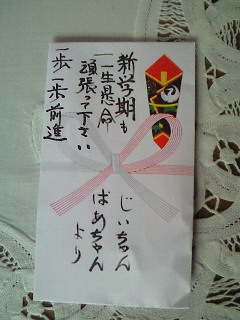 新学期も
一生懸命
頑張って下さい
一歩一歩前進
じいちゃん
ばあちゃん
より